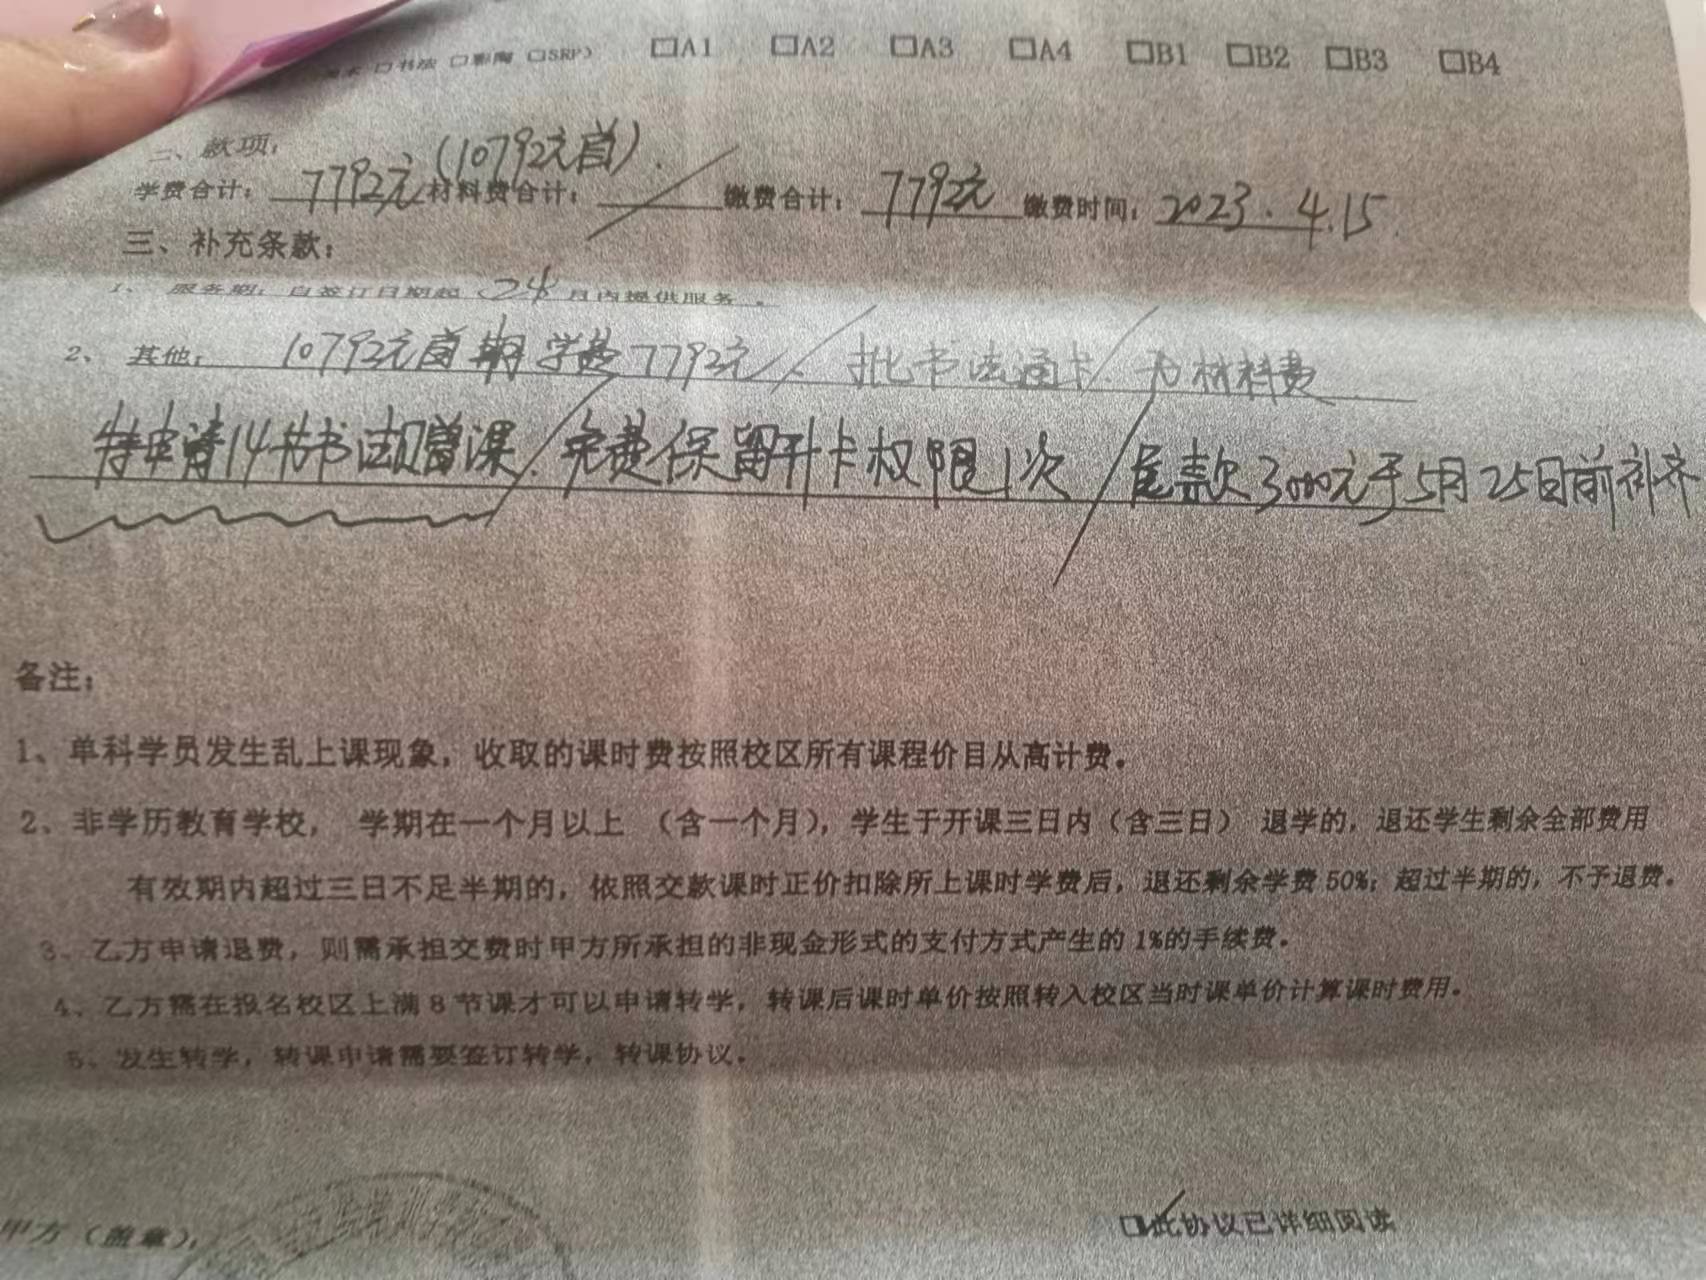 □书法 □彩陶 □SRP) □A1 □A2 □A3 □A4 □B1 □B2 □B3 □B4
二、款项:
(10792元首).
学费合计: 7792元 材料费合计: 缴费合计: 7792元 缴费时间: 2023.4.15
三、补充条款:
1、服务期: 自签订日期起 24 月内提供服务。
2、其他: 10792元首期学费7792元 / 书法通卡 / 材料费
特申请14节书法赠课 / 免费保留升卡权限1次 / 尾款3000元于5月25日前补齐
备注:
1、单科学员发生乱上课现象，收取的课时费按照校区所有课程价目从高计费。
2、非学历教育学校， 学期在一个月以上 (含一个月)，学生于开课三日内（含三日） 退学的，退还学生剩余全部费用
有效期内超过三日不足半期的，依照交款课时正价扣除所上课时学费后，退还剩余学费50%；超过半期的，不予退费。
3、乙方申请退费，则需承担交费时甲方所承担的非现金形式的支付方式产生的1%的手续费。
4、乙方需在报名校区上满8节课才可以申请转学，转课后课时单价按照转入校区当时课单价计算课时费用。
5、发生转学，转课申请需要签订转学，转课协议。
甲方（盖章）:
□此协议已详细阅读